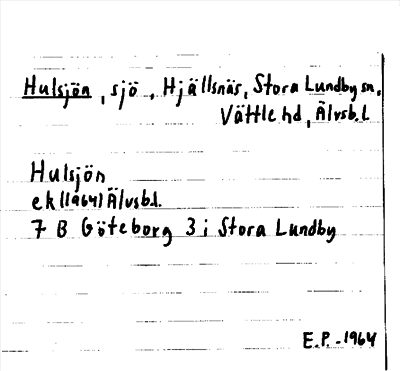 Hulsjön, sjö, Hjällsnäs, Stora Lundby sn,
Vättle hd, Älvsb.l.
Hulsjön
ek (1964) Älvsb.l.
7 B Göteborg 3 i Stora Lundby
E.P. - 1964